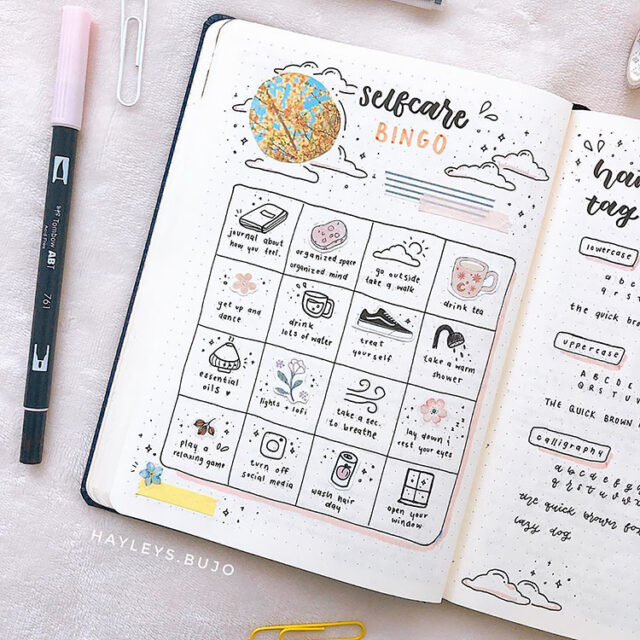 selfcare
BINGO
journal about
how you feel.
organized space
organized mind
go outside
take a walk
drink tea
get up and
dance
drink
lots of water
treat
yourself
take a warm
shower
essential
oils ♥
lights + lofi
take a sec.
to breathe
lay down &
rest your eyes
play a
relaxing game
turn off
social media
wash hair
day
open your
window
tag
lowercase
a b c
the quick brow
uppercase
A B C D E
THE QUICK BROWN
calligraphy
the quick brown fo
lazy dog
Tombow ABT
761
HAYLEYS.BUJO